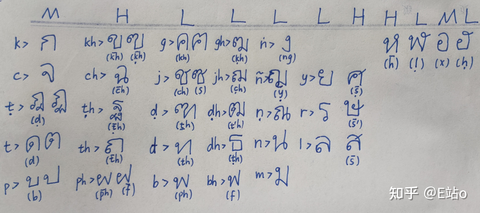 M H L L L L H H L M L
k> ก kh> ขฃ g> คฅ gh> ฆ ṅ> ง ห ฬ อ ฮ
(k̄h) (k̄h) (kh) (kh) (ng) (h̄) (ḷ) (x) (ḥ)
c> จ ch> ฉ j> ชซ jh> ฌ ñ> ญ y> ย ศ
(c̄h) (ch) (s) (ch) (y) (ṣ̄)
ṭ> ฎฏ ṭh> ฐ ḍ> ฑ ḍh> ฒ ṇ> ณ r> ร ษ
(d) (ṭ̄h) (ṯh) (t'h) (s̄')
t> ดต th> ถ d> ท dh> ธ n> น l> ล ส
(d) (t̄h) (th) (ṭh) (s̄)
p> บป ph> ผฝ b> พ bh> ฟ m> ม
(b) (p̄h) (f̄) (ph) (f)
知乎 @E站o